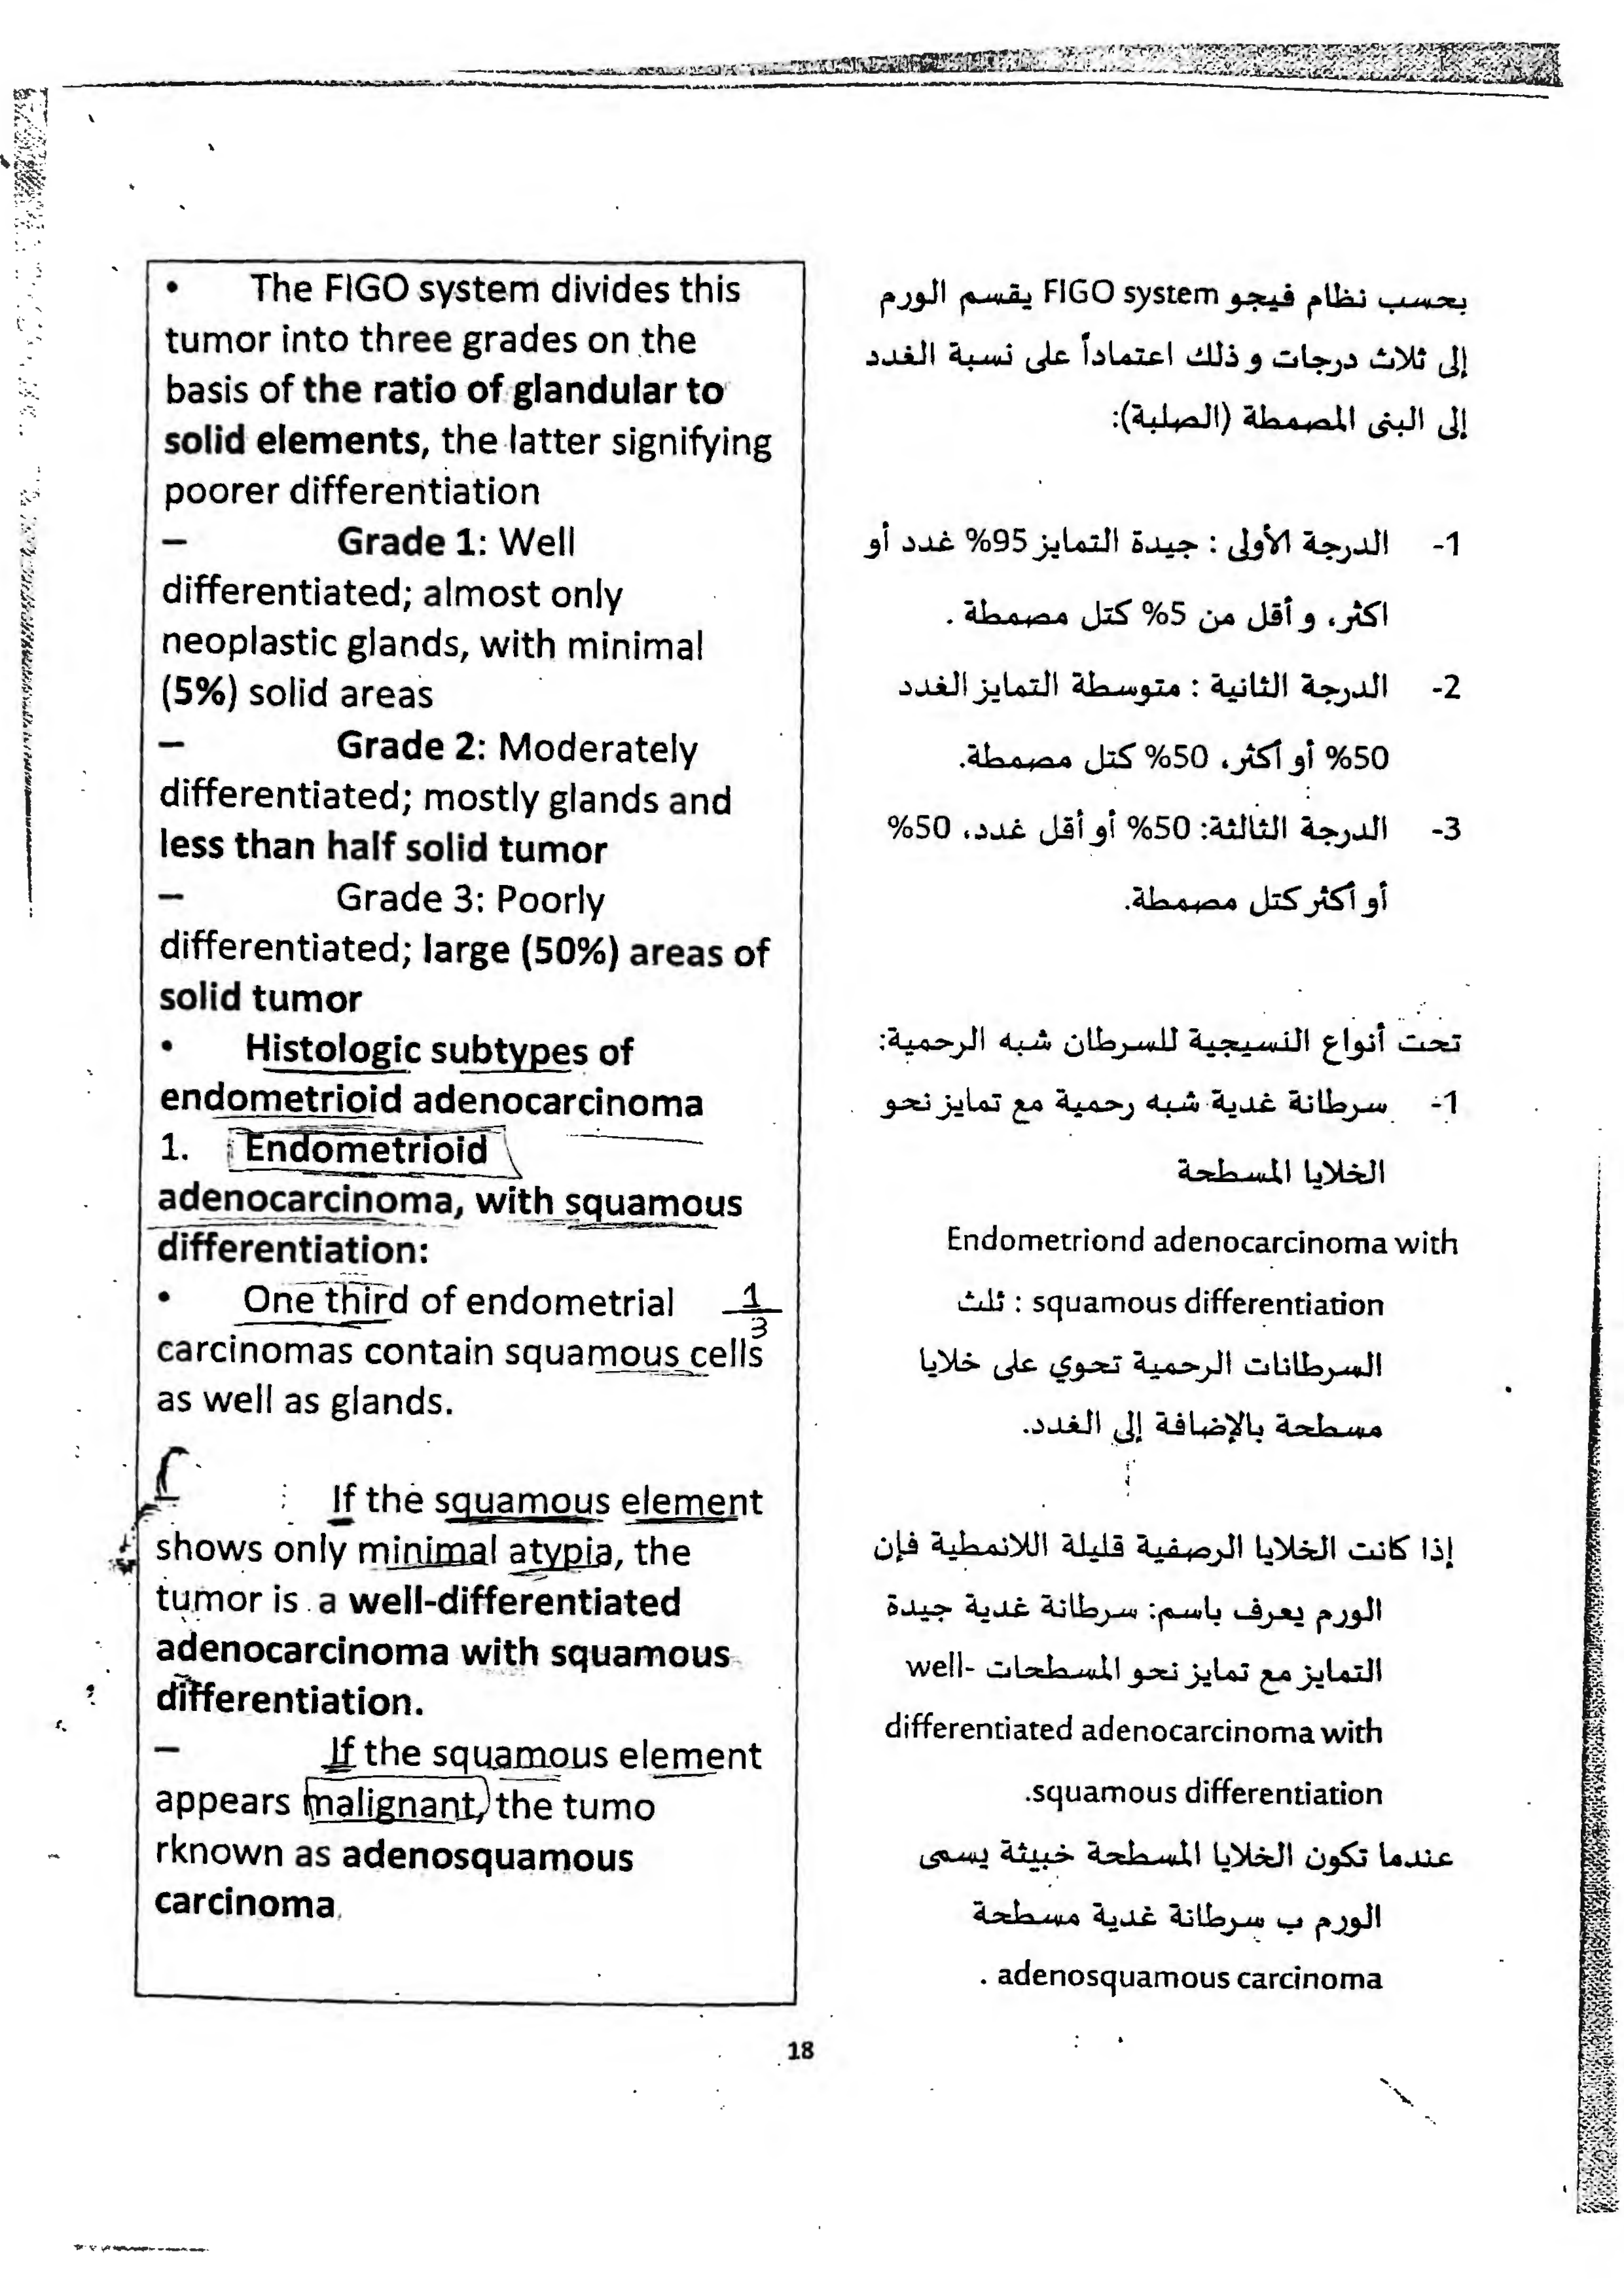 • The FIGO system divides this
tumor into three grades on the
basis of the ratio of glandular to
solid elements, the latter signifying
poorer differentiation
– Grade 1: Well
differentiated; almost only
neoplastic glands, with minimal
(5%) solid areas
– Grade 2: Moderately
differentiated; mostly glands and
less than half solid tumor
– Grade 3: Poorly
differentiated; large (50%) areas of
solid tumor
• Histologic subtypes of
endometrioid adenocarcinoma
1. Endometrioid
adenocarcinoma, with squamous
differentiation:
• One third of endometrial 1/3
carcinomas contain squamous cells
as well as glands.
If the squamous element
shows only minimal atypia, the
tumor is a well-differentiated
adenocarcinoma with squamous
differentiation.
– If the squamous element
appears malignant, the tumo
rknown as adenosquamous
carcinoma
بحسب نظام فيجو FIGO system يقسم الورم
إلى ثلاث درجات و ذلك اعتماداً على نسبة الغدد
إلى البنى المصمطة (الصلبة):
1- الدرجة الأولى : جيدة التمايز 95% غدد أو
اكثر، و أقل من 5% كتل مصمطة .
2- الدرجة الثانية : متوسطة التمايز الغدد
50% أو أكثر، 50% كتل مصمطة.
3- الدرجة الثالثة: 50% أو أقل غدد، 50%
أو أكثر كتل مصمطة.
تحت أنواع النسيجية للسرطان شبه الرحمية:
1- سرطانة غدية شبه رحمية مع تمايز نحو
الخلايا المسطحة
Endometriond adenocarcinoma with
squamous differentiation : ثلث
السرطانات الرحمية تحوي على خلايا
مسطحة بالإضافة إلى الغدد.
إذا كانت الخلايا الرصفية قليلة اللانمطية فإن
الورم يعرف باسم: سرطانة غدية جيدة
التمايز مع تمايز نحو المسطحات well-
differentiated adenocarcinoma with
squamous differentiation.
عندما تكون الخلايا المسطحة خبيثة يسمى
الورم ب سرطانة غدية مسطحة
adenosquamous carcinoma .
18